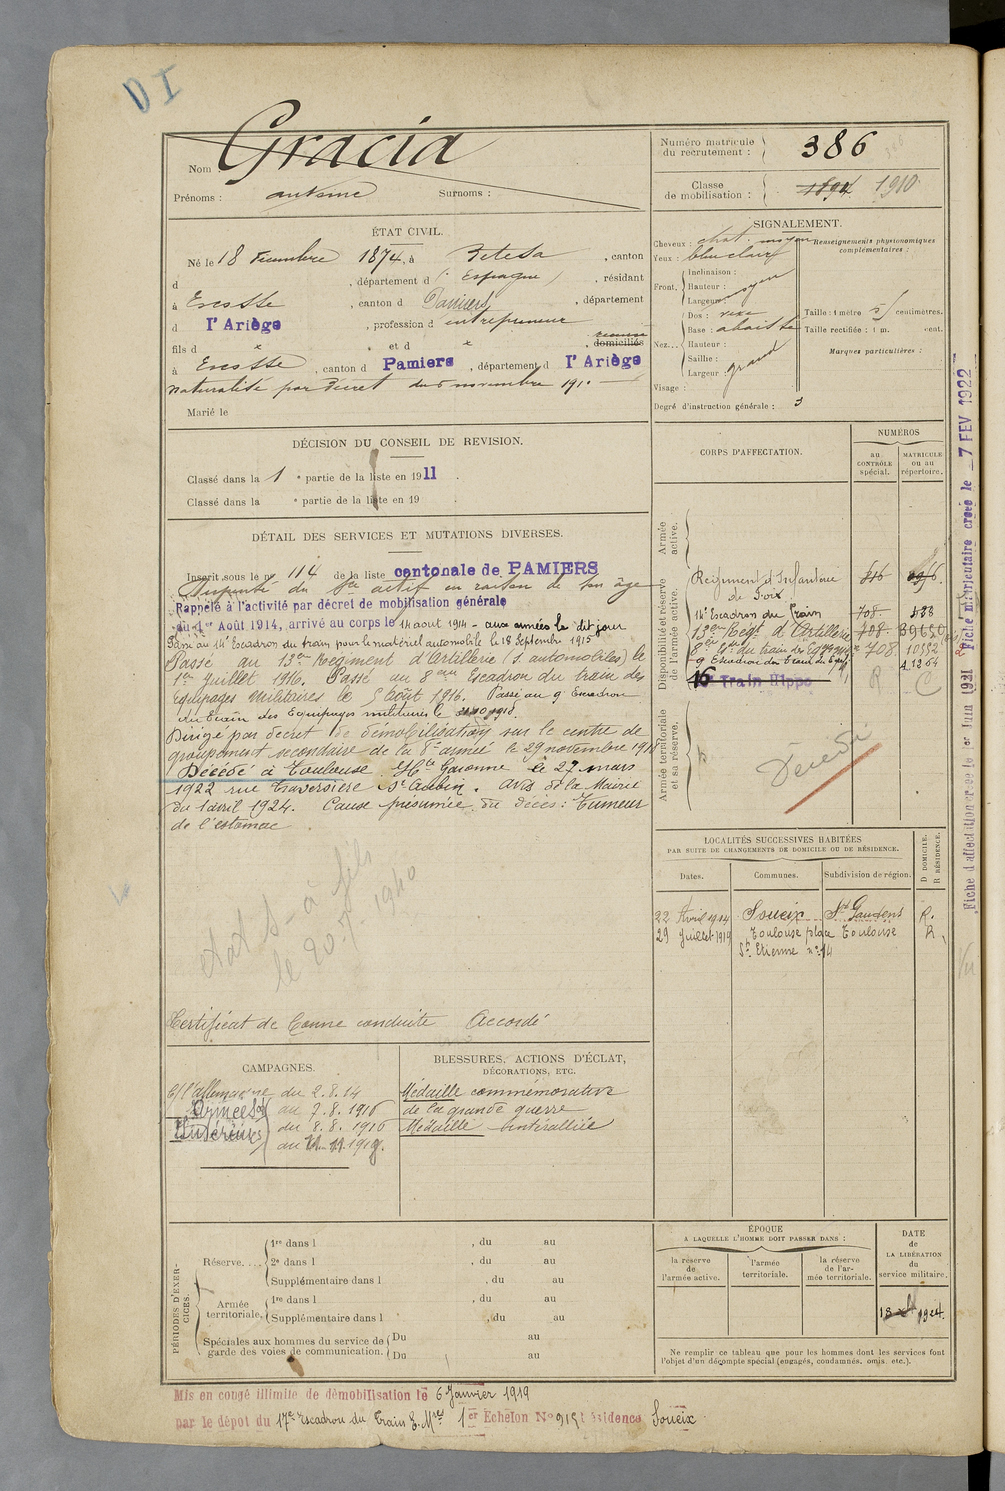 D I
Nom Gracia
Prénoms : antoine Surnoms :
Numéro matricule
du recrutement : 386
Classe
de mobilisation : 1894 1910
ÉTAT CIVIL.
Né le 18 Décembre 1874, à Betesa , canton
d , département d (Espagne) , résidant
à Escosse , canton d Pamiers , département
d l'Ariège , profession d entrepreneur
fils d x et d x domiciliés
à Escosse , canton d Pamiers , département d l'Ariège
naturalisé par décret du 5 novembre 1910
Marié le
SIGNALEMENT.
Cheveux : chat. moyen Renseignements physionomiques
complémentaires :
Yeux : bleu clair
Front. Inclinaison :
Hauteur : moyen
Largeur :
Nez... Dos : vexe
Base : abaissé
Hauteur :
Saillie :
Largeur : grand
Taille : 1 mètre 5 centimètres.
Taille rectifiée : 1 m. cent.
Marques particulières :
Visage :
Degré d'instruction générale : 3
DÉCISION DU CONSEIL DE REVISION.
Classé dans la 1 e partie de la liste en 1911 .
Classé dans la e partie de la liste en 19 .
DÉTAIL DES SERVICES ET MUTATIONS DIVERSES.
Inscrit sous le n° 114 de la liste cantonale de PAMIERS
Dispensé du Sce actif en raison de son âge
Rappelé à l'activité par décret de mobilisation générale
du 1er Août 1914, arrivé au corps le 14 aout 1914 - aux armées le dit jour
Passé au 14e Escadron du train pour le matériel automobile le 18 Septembre 1915
Passé au 13em Régiment d'Artillerie (S. automobiles) le
1er juillet 1916. Passé au 8em Escadron du train des
Equipages militaires le 5 Août 1916. Passé au 9 Escadron
du Train des Equipages militaires le
Dirigé par décret de démobilisation sur le centre de
groupement secondaire de la 8e armée le 29 novembre 1918
Décédé à Toulouse Hte Garonne le 27 mars
1922 rue Traversière St Aubin. Avis de la Mairie
du 1 avril 1924. Cause présumée du décès : Tumeur
de l'estomac
à fils
le 20-7-1940
Certificat de bonne conduite Accordé
CORPS D'AFFECTATION.
NUMÉROS
au
CONTRÔLE
spécial.
MATRICULE
ou au
répertoire.
Armée
active.
Disponibilité et réserve
de l'armée active.
Régiment d'Infanterie
de Foix
14e Escadron du Train 708
13em Regt d'Artillerie 708
8em Eon du train des Equipages 708 10552
9 Escadron du Train des Equip
16 Train Hippo R C
Armée territoriale
et sa réserve.
Décédé
LOCALITÉS SUCCESSIVES HABITÉES
PAR SUITE DE CHANGEMENTS DE DOMICILE OU DE RÉSIDENCE.
D DOMICILE.
R RÉSIDENCE.
Dates. Communes. Subdivision de région.
22 Avril 1914 Soueix St Gaudens R.
29 Juillet 1919 Toulouse place Toulouse R.
St Etienne n° 14
CAMPAGNES.
C/ l'allemagne du 2.8.14
Armées au 7.8.1916
Intérieur du 8.8.1916
au
BLESSURES, ACTIONS D'ÉCLAT,
DÉCORATIONS, ETC.
Médaille commémorative
de la grande guerre
Médaille Interalliée
PÉRIODES D'EXERCICES.
Réserve.... 1re dans l , du au
2e dans l , du au
Supplémentaire dans l , du au
Armée
territoriale. 1re dans l , du au
Supplémentaire dans l , du au
Spéciales aux hommes du service de
garde des voies de communication. Du au
Du au
ÉPOQUE
A LAQUELLE L'HOMME DOIT PASSER DANS :
la réserve
de
l'armée active.
l'armée
territoriale.
la réserve
de l'ar-
mée territoriale.
DATE
de
LA LIBÉRATION
du
service militaire.
1924.
Ne remplir ce tableau que pour les hommes dont les services font
l'objet d'un décompte spécial (engagés, condamnés, omis, etc.).
Mis en congé illimité de démobilisation le 6 Janvier 1919
par le dépôt du 17e Escadron du Train E. Mres 1er Echelon N° 919 résidence Soueix
Fiche d'affectation créée le 1er Juin 1921 Fiche matriculaire créée le 7 FEV 1922